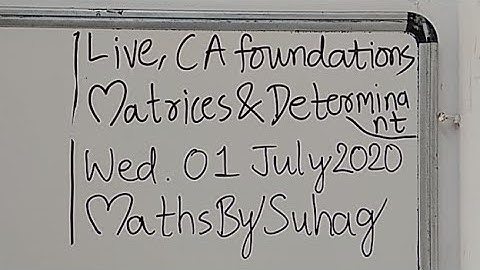 Live, CA foundations
Matrices & Determinant
Wed. 01 July 2020
MathsBySuhag